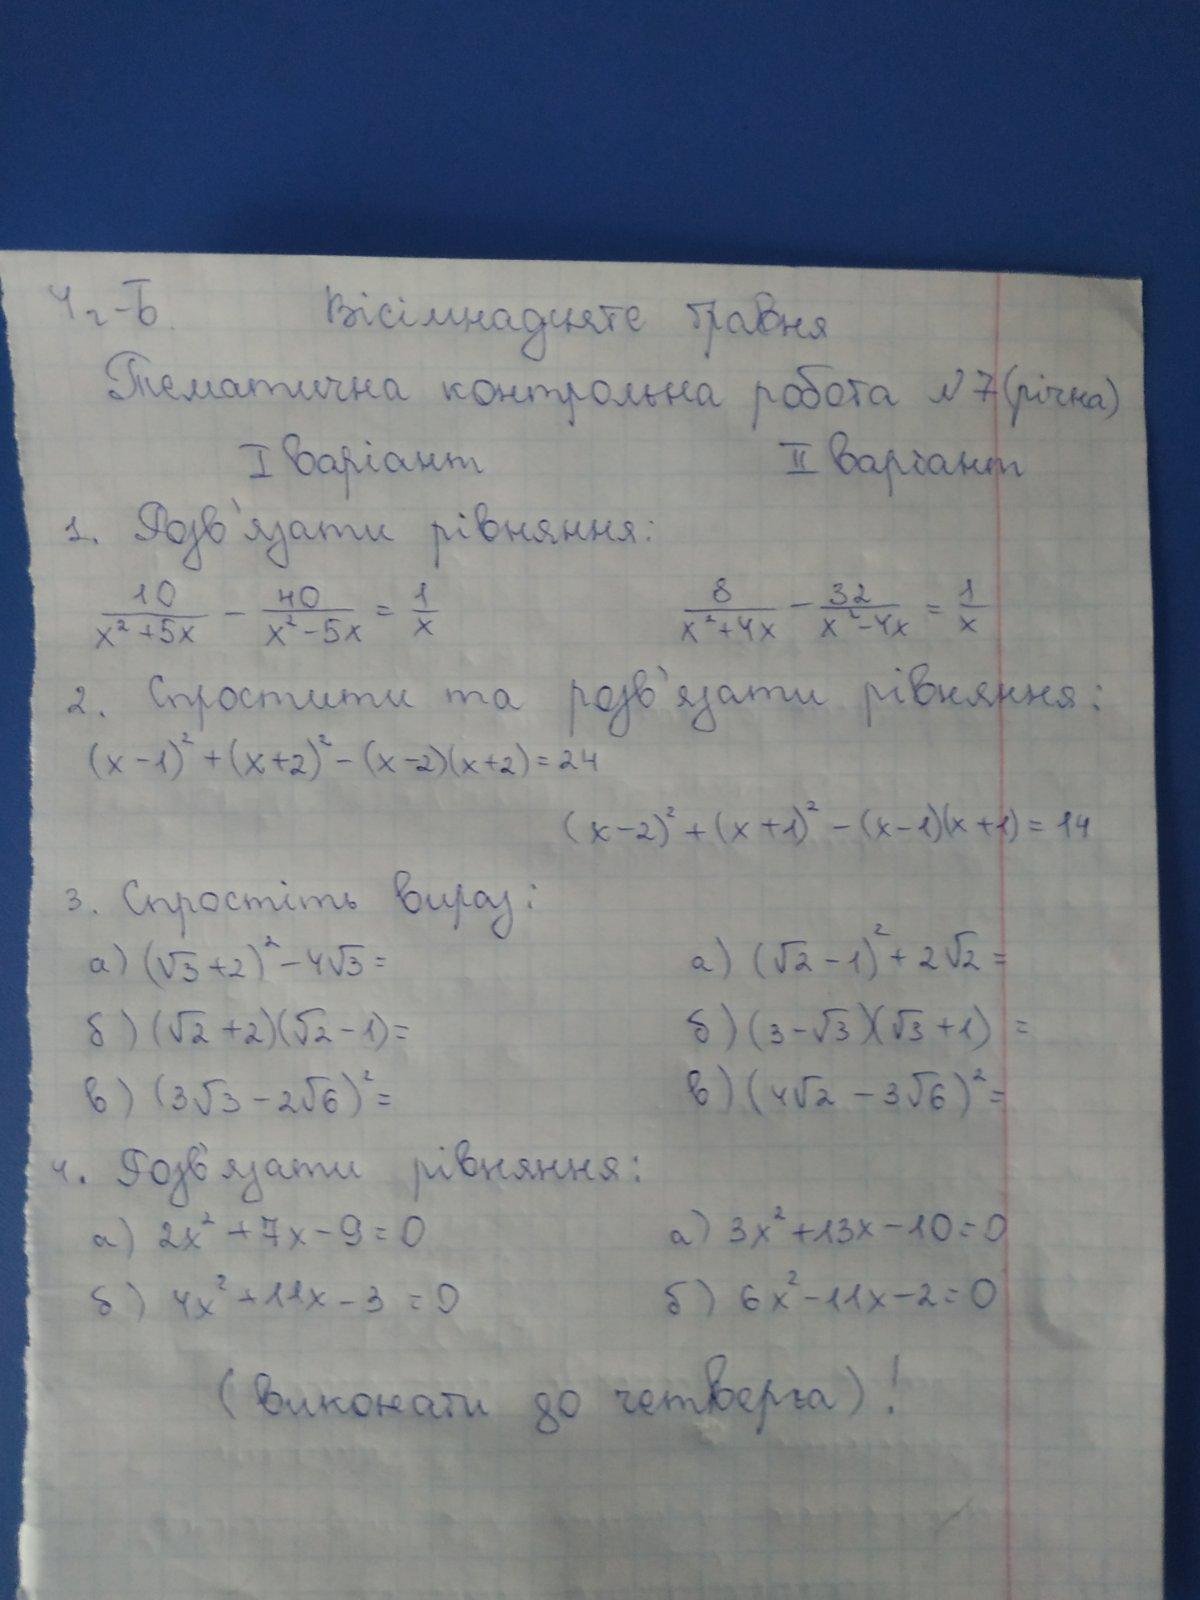 4г-Б. Вісімнадцяте травня
Тематична контрольна робота №7 (річна)
I варіант II варіант
1. Розв'язати рівняння:
10/(x²+5x) - 40/(x²-5x) = 1/x 8/(x²+4x) - 32/(x²-4x) = 1/x
2. Спростити та розв'язати рівняння:
(x-1)²+(x+2)²-(x-2)(x+2)=24
(x-2)²+(x+1)²-(x-1)(x+1)=14
3. Спростіть вираз:
а) (√3+2)²-4√3= а) (√2-1)²+2√2=
б) (√2+2)(√2-1)= б) (3-√3)(√3+1) =
в) (3√3-2√6)²= в) (4√2-3√6)²=
4. Розв'язати рівняння:
а) 2x²+7x-9=0 а) 3x²+13x-10=0
б) 4x²+11x-3=0 б) 6x²-11x-2=0
(виконати до четверга)!